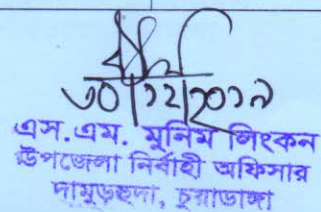 ৩০/১২/২০১৯
এস.এম. মুনিম লিংকন
উপজেলা নির্বাহী অফিসার
দামুড়হুদা, চুয়াডাঙ্গা